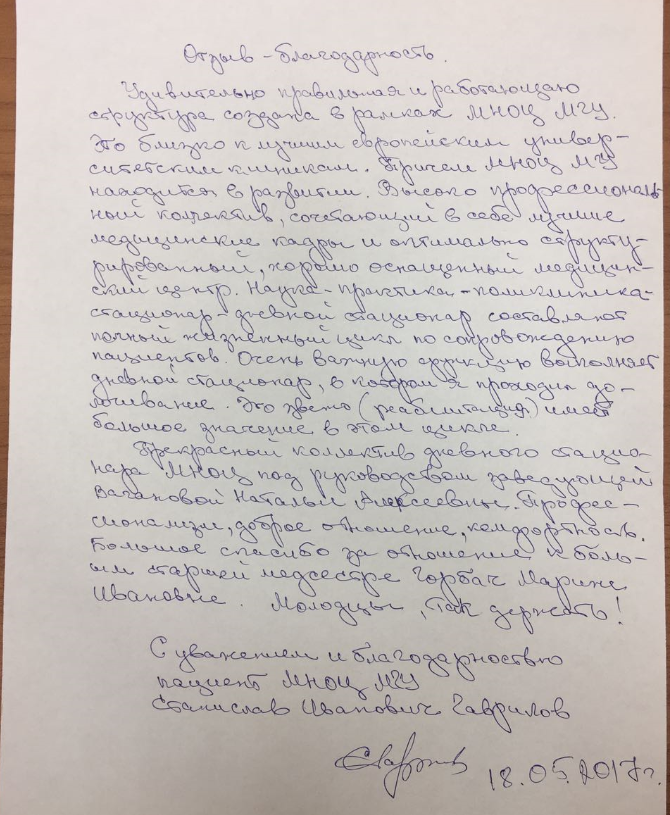 Отзыв – благодарность.
Удивительно правильная и работающая
структура создана в рамках МНОЦ МГУ.
Это близко к лучшим европейским универ-
ситетским клиникам. Причем МНОЦ МГУ
находится в развитии. Высоко профессиональ-
ный коллектив, сочетающий в себе лучшие
медицинские кадры и оптимально структу-
рированный, хорошо оснащенный медицин-
ский центр. Наука - практика - поликлиника-
стационар - дневной стационар составляют
полный жизненный цикл по сопровождению
пациентов. Очень важную функцию выполняет
дневной стационар, в котором я проходил до-
лечивание. Это звено (реабилитация) имеет
большое значение в этом цикле.
Прекрасный коллектив дневного стацио-
нара МНОЦ под руководством заведующей
Вагановой Натальи Алексеевны. Профес-
сионализм, доброе отношение, комфортность.
Большое спасибо за отношение к боль-
ым старшей медсестре Горбач Марине
Ивановне. Молодцы, так держать!
С уважением и благодарностью
пациент МНОЦ МГУ
Станислав Иванович Гаврилов
18.05.2017г.